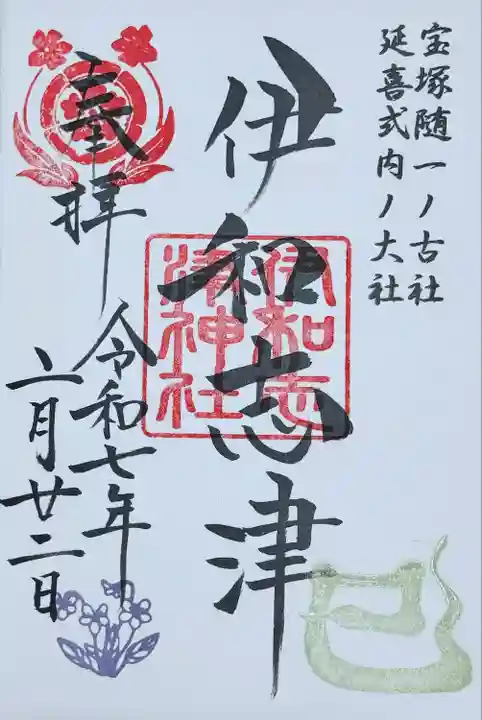 宝塚随一ノ古社
延喜式内ノ大社
伊和志津
伊和志
津神社
奉拝
令和七年
六月廿二日
巳